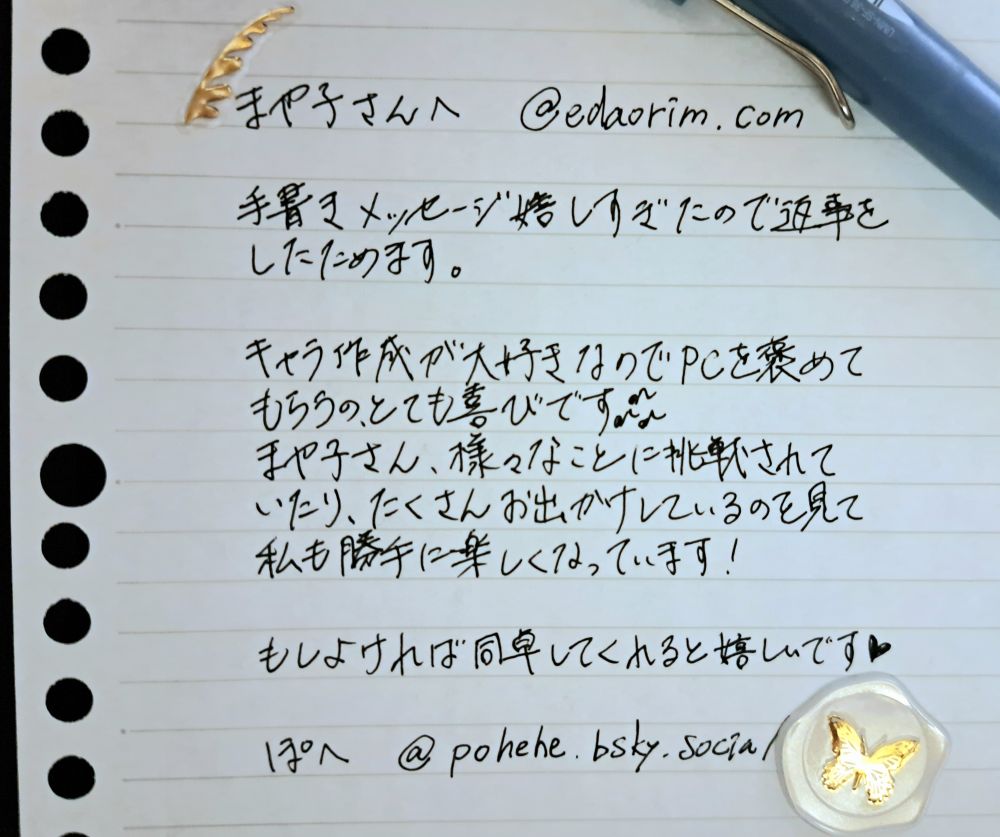 まや子さんへ @edaorim.com
手書きメッセージ嬉しすぎたので返事を
したためます。
キャラ作成が大好きなのでPCを褒めて
もらうの、とても喜びです
まや子さん、様々なことに挑戦されて
いたり、たくさんお出かけしているのを見て
私も勝手に楽しくなっています!
もしよければ同卓してくれると嬉しいです♥
ぽへ @pohehe.bsky.social